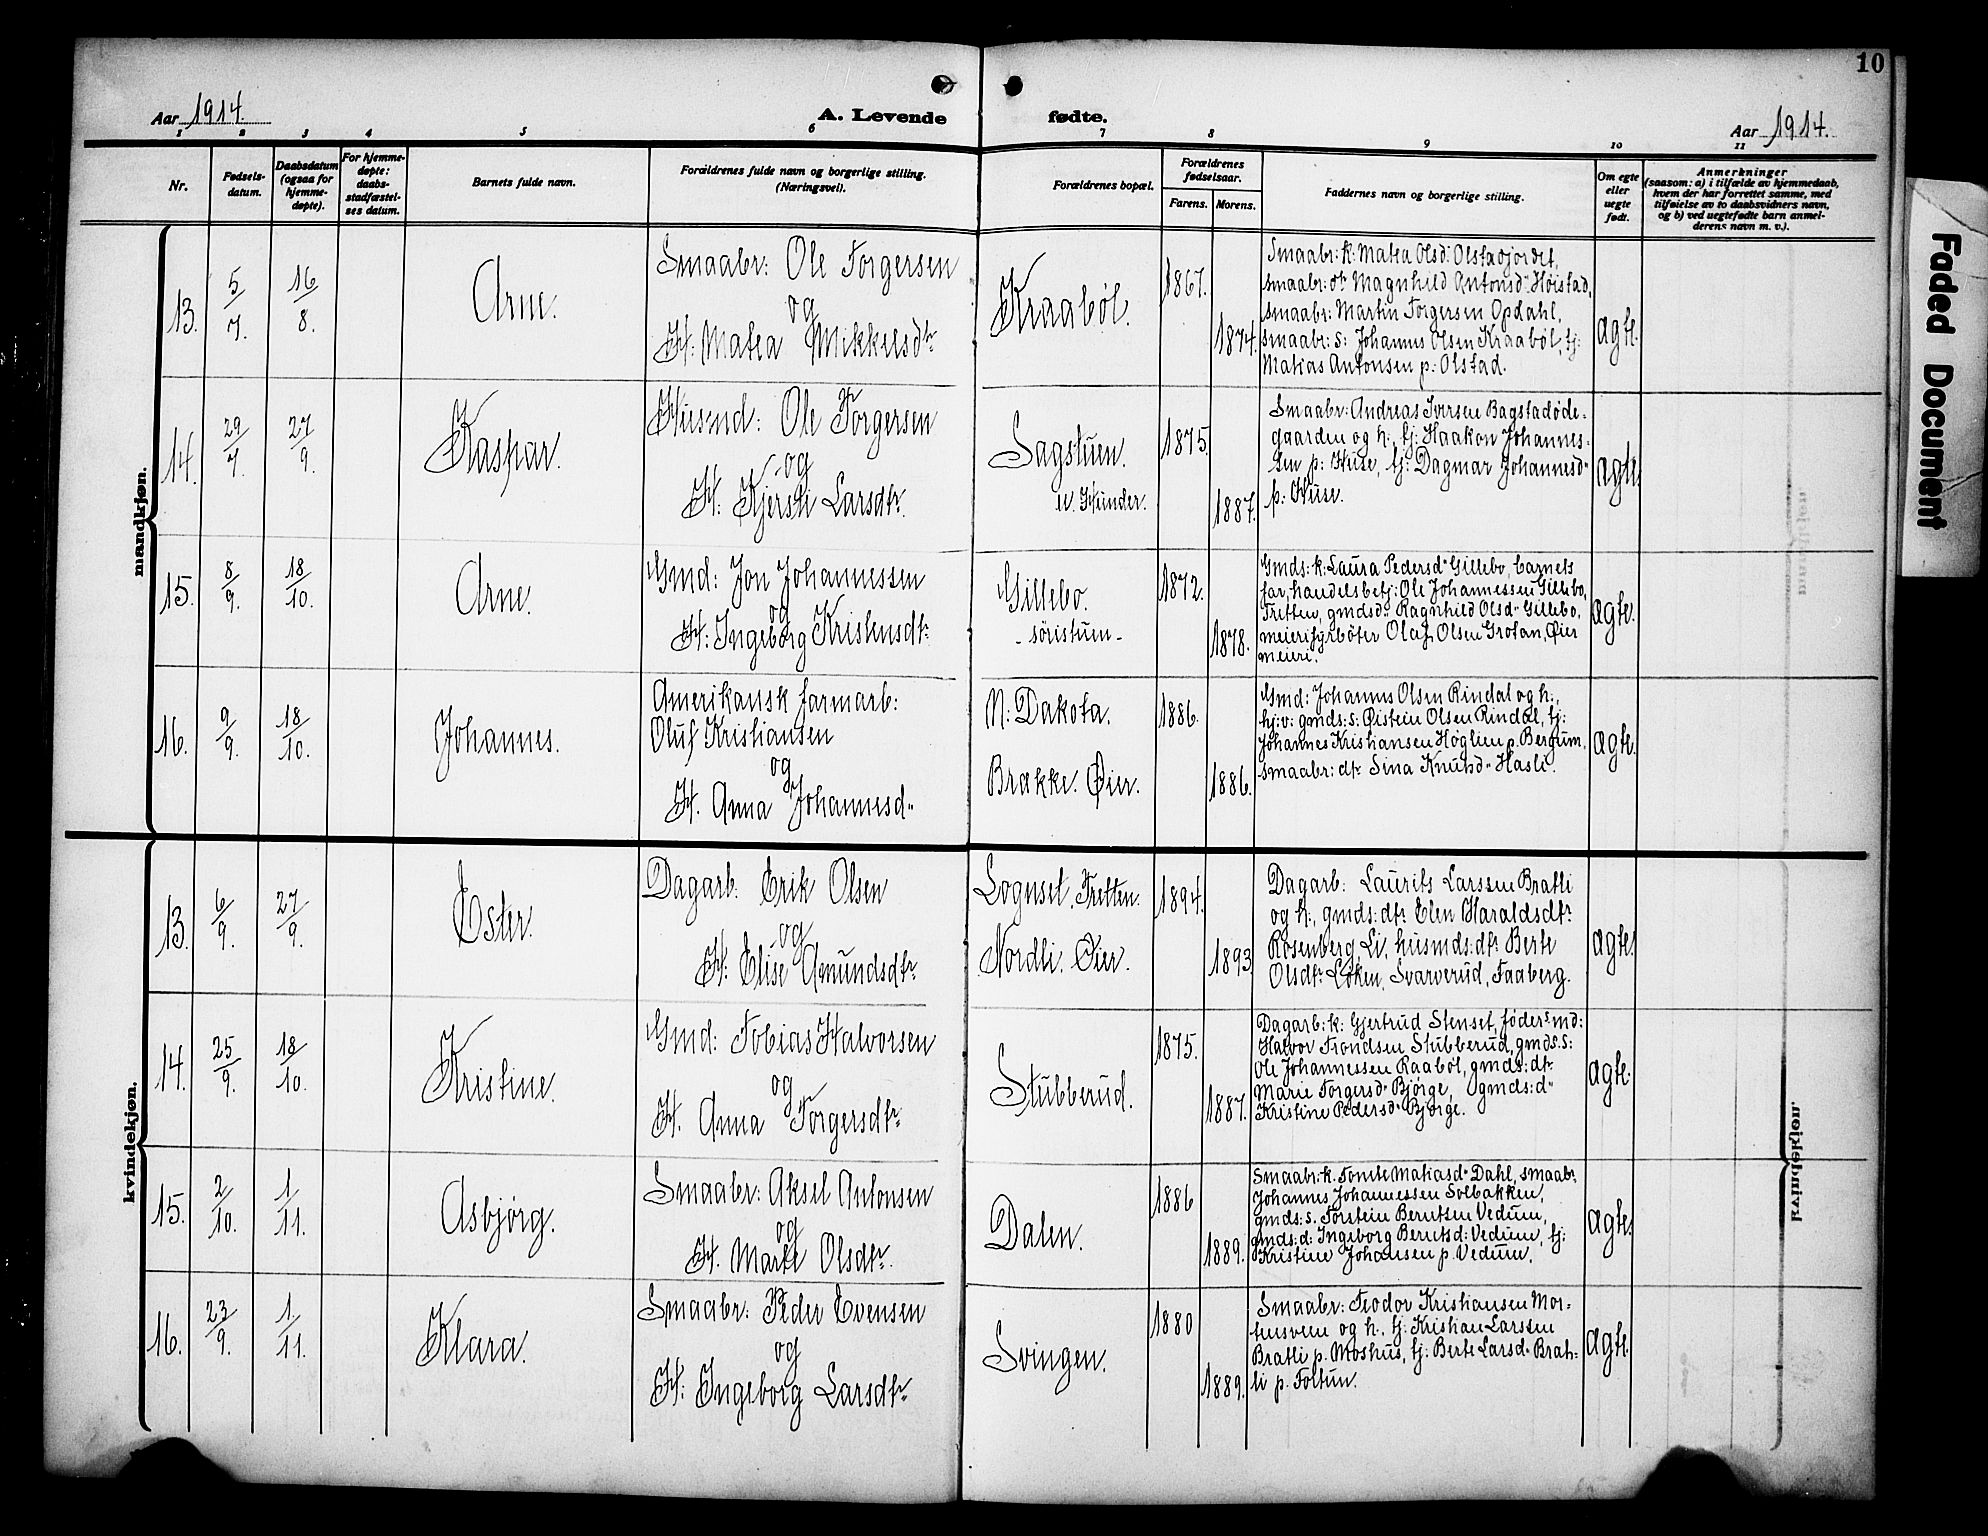 10
Aar 1914.
A. Levende fødte.
Aar 1914.
1 2 3 4 5 6 7 8 9 10 11
Nr.
Fødsels-
datum.
Daabsdatum
(ogsaa for
hjemme-
døpte).
For hjemme-
døpte:
daabs-
stadfæstel-
ses datum.
Barnets fulde navn.
Forældrenes fulde navn og borgerlige stilling.
(Næringsvei).
Forældrenes bopæl.
Forældrenes
fødselsaar.
Farens. Morens.
Faddernes navn og borgerlige stilling.
Om egte
eller
uegte
født.
Anmerkninger
(saasom: a) i tilfælde av hjemmedaab,
hvem der har forrettet samme, med
tilføielse av to daabsvidners navn,
og b) ved uegtefødte barn anmel-
derens navn m. v.).
mandkjøn.
13. 5/7. 16/8. Arne.
Smaabr: Ole Torgersen
og
H: Matea Mikkelsdtr
Kraabøl.
1867.
1874.
Smaabr: k: Matea Olsd: Olstadjordet,
smaabr: dtr Magnhild Antonsd" Høistad,
smaabr: Martin Torgersen Opdahl,
smaabr: s: Johannes Olsen Kraabøl, tj:
Matias Antonsen p: Olstad.
ægte.
14. 29/7. 27/9. Kaspar.
Husmd: Ole Torgersen
og
H: Kjersti Larsdtr.
Sagstuen.
u. Hunder.
1875.
1887.
Smaabr: Andreas Iversen Bagstadøde-
gaarden og h., tj: Haakon Johannes-
sen p: Huse, tj: Dagmar Johannesd"
p: Huse.
ægte.
15. 8/9. 18/10. Arne.
Gmd: Jon Johannessen
og
H: Ingeborg Kristensdtr.
Gillebo.
- søristuen -
1872.
1878.
Gmds: k: Laura Pedersd" Gillebo, barnets
far, handelsbetj: Ole Johannessen Gillebo,
Tretten, gmdsd: Ragnhild Olsd" Gillebo,
meierifyrbøter Olaf Olsen Grotan, Øier
meieri.
ægte.
16. 9/9. 18/10. Johannes.
Amerikansk farmarb:
Oluf Kristiansen
og
H. Anna Johannesd"
N: Dakota.
Brække. Øier.
1886.
1886.
Gmd: Johannes Olsen Rindal og h:,
hj: v: gmds: s: Øistein Olsen Rindal, tj:
Johannes Kristiansen Høglien p. Bergum,
smaabr: dtr Sina Knutsd" Hasli.
ægte.
kvindekjøn.
13. 6/9. 27/9. Ester.
Dagarb: Erik Olsen
og
H: Elise Amundsdtr
Lognset, Tretten
Nordli. Øier.
1894.
1893
Dagarb: Laurits Larssen Bratli
og h:, gmds: dtr Elen Haraldsdtr
Rosenberg, Li, husmds: dtr Berte
Olsdtr Løken, Svarverud, Faaberg.
ægte.
14. 25/9. 18/10. Kristine.
Gmd: Tobias Halvorsen
og
H. Anna Torgersdtr
Stubberud.
1875.
1887.
Dagarb: k: Gjertrud Stenset, føders md:
Halvor Trondsen Stubberud, gmds. s:
Ole Johannessen Raabøl, gmds: dtr
Marie Torgersd" Bjørge, gmds: d"
Kristine Pedersd" Bjørge.
ægte.
15. 2/10. 1/11. Asbjørg.
Smaabr: Aksel Antonsen
og
H. Marte Olsdtr.
Dalen.
1886
1889.
Smaabr: k. Tomine Matiasd" Dahl, smaabr.
Johannes Johannessen Solbakken,
gmds: s. Torstein Berntsen Vedum,
gmds: d: Ingeborg Berntsd: Vedum, tj:
Kristine Johansen p. Vedum.
ægte.
16. 23/9. 1/11. Klara.
Smaabr: Peder Evensen
og
H: Ingeborg Larsdtr
Svingen.
1880
1889.
Smaabr: Teodor Kristiansen Mor-
tensveen og h. tj: Kristian Larssen
Bratli p. Moshus, tj: Berte Larsd" Brat-
li p. Toftun.
ægte.
kvindekjøn.
Faded Document